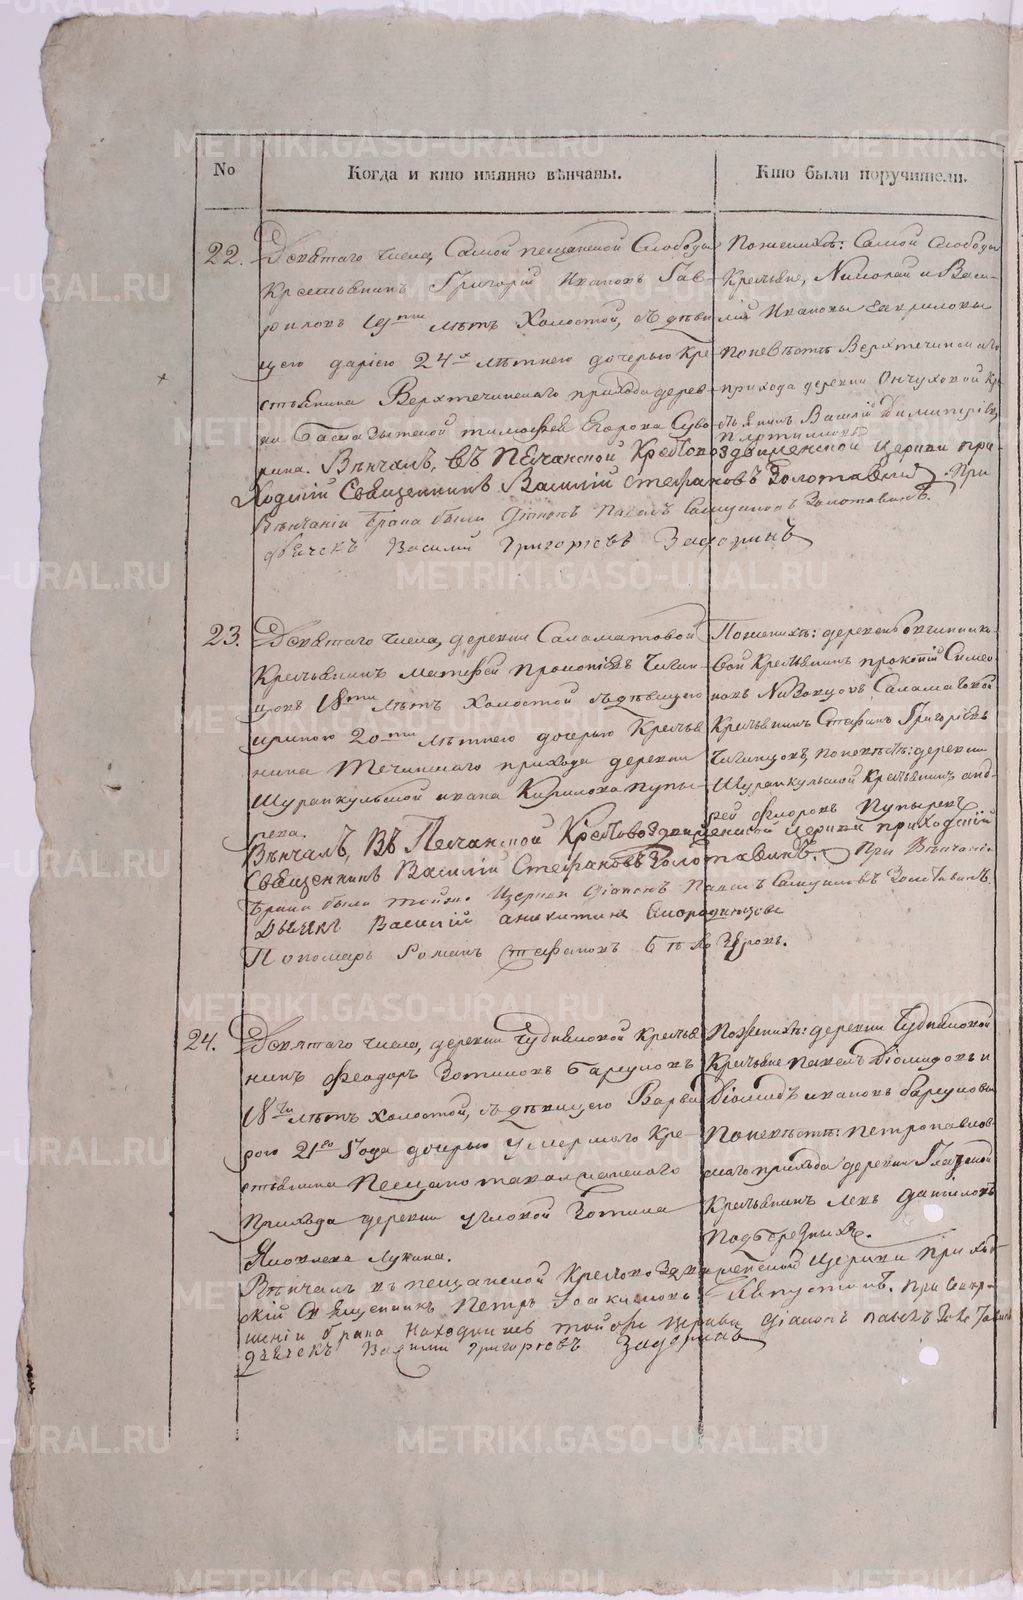 No
Когда и кто имянно вѣнчаны.
Кто были поручители.
22.
Девятаго числа, Самой Пещанской Слободы
Крестьянинъ Григорій Ивановъ Гав-
риловъ 19ти лѣтъ Холостой, съ дѣви
цею Даріею 24х лѣтнею дочерью Кре-
стьянина Верхтечинскаго прихода дерев-
ни Тимофея Егорова Суво-
рина. Вѣнчалъ, въ Песчанской Крестовоздвиженской церкви при-
ходскій Священникъ Василій Стефановъ Золотавинъ. При
Вѣнчаніи брака были Діаконъ Павелъ Самуиловъ Золотавинъ.
дьячекъ Василій Григорьевъ Задоринъ
По женихѣ: Самой Слободы
Крестьяне, Николай и Васи-
лій Ивановы Гавриловы
По невѣстѣ Верхтечинскаго
прихода деревни Ончуховой Кре
стьянинъ Василій Димитріевъ
Плотниковъ
23.
Девятаго числа, деревни Саламатовой
Крестьянинъ Матвей Прокопіевъ Чигин
цовъ 18ти лѣтъ Холостой съ дѣвицею
Ириною 20ти лѣтнею дочерью Крестья
нина Течинскаго прихода деревни
Шуранкульской Ивана Кирилова Пупы-
рева.
Вѣнчалъ, въ Песчанской Крестовоздвиженской церкви приходскій
Священникъ Василій Стефановъ Золотавинъ. При Вѣнчаніи
брака были тойже Церкви Діаконъ Павелъ Самуиловъ Золотавинъ
Дьячкъ Василій Аникитинъ Смородинцовъ
Пономарь Романъ Стефановъ
По женихѣ: деревень Овчинников-
вой Крестьянинъ Прокопій Симео
новъ Саламатовой
Крестьянинъ Стефанъ Григоріевъ
Чигинцовъ, по невѣстѣ: деревни
Шуранкульской Крестьянинъ Анд-
рей Фторовъ Пупыревъ
24.
Девятаго числа, деревни Чудиновой Крестья
нинъ Феодоръ Зотиковъ
18ти лѣтъ холостой, съ дѣвицею Варва
рою 21го Года дочерью умершаго Кре-
стьянина Пещанотаволжанскаго
Прихода деревни Угловой Фотина
Яковлева Лукина.
Вѣнчалъ въ Пещанской Крестовоздвиженской Церкви Приход-
скій Священникъ Петръ Іоакимовъ Капустинъ. При Совер-
шеніи брака находились тойже Церкви Діаконъ Павелъ
дьячекъ Василій Григорьевъ Задоринъ
По женихѣ: деревни Чудиновой
Крестьяне Павелъ Діомидовъ и
Діомидъ Ивановъ
По невѣстѣ: Петропавлов
скаго прихода деревни
Крестьянинъ Левъ Даниловъ
Подъ
METRIKI.GASO-URAL.RU